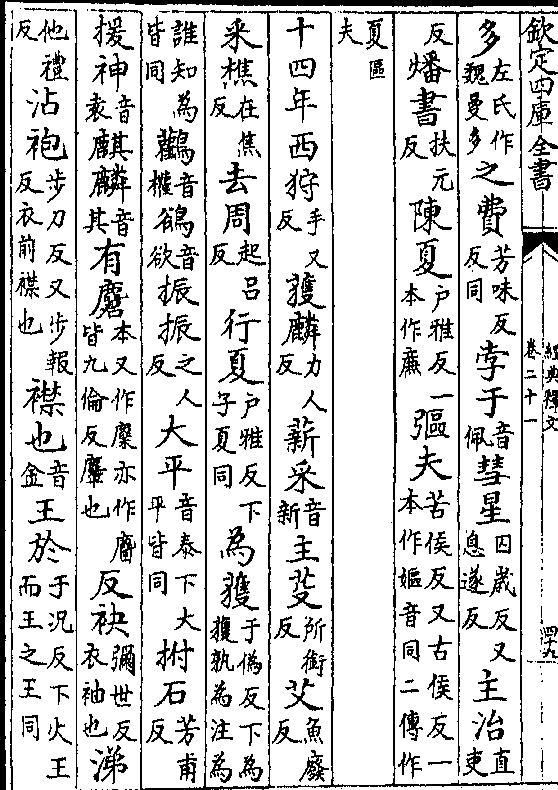 欽定四庫全書
經典釋文
卷二十一
四十九
多左氏作魏曼多之費芳味反反同孛于音佩彗星囚歲反又息遂反主治直吏
反燔書扶元反陳夏户雅反一本作廉彄夫苦侯反又古侯反一本作嫗音同二傳作
夏區夫
十四年西狩手又反獲麟力人反薪采音新主芟所銜反艾魚廢反
采樵在焦反去周起呂反行夏户雅反下子夏同為獲于偽反下為獲孰為注為
誰知為皆同鸛音權鵒音欲振振之人反大平音泰下大平皆同拊石芳甫反
援神音袁麒麟音其有麏本又作麇亦作麕皆九倫反麞也反袂彌世反衣袖也涕
他禮反沾袍步刀反又步報反衣前襟也襟也音金王於于況反下火王而王之王同